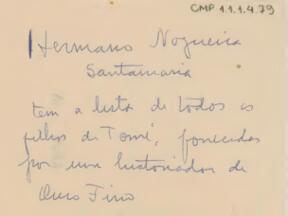 CMP 1.1.4.79
Hermano Nogueira
Santamaria
tem a lista de todos os
filhos de Tomé, fornecidas
por um historiador de
Ouro Fino